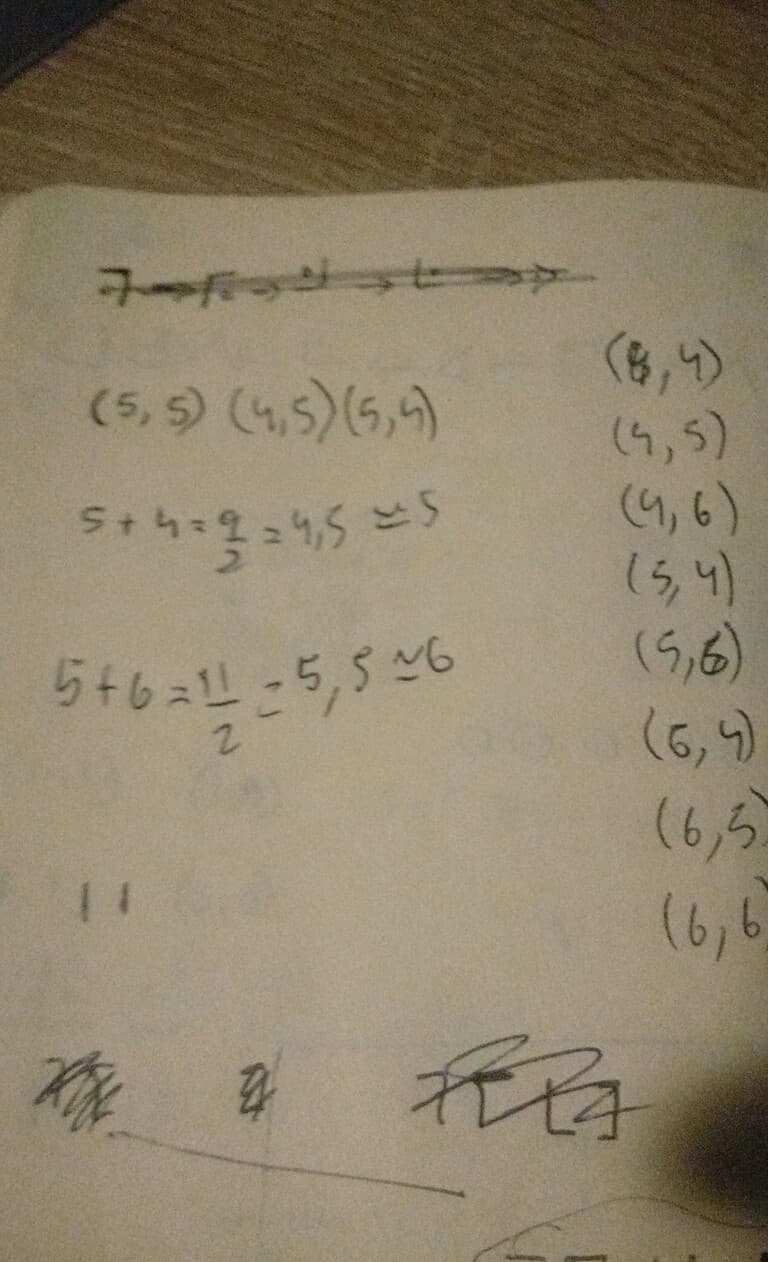 (5,5) (4,5) (5,4)
5+4=9/2=4,5≃5
5+6=11/2=5,5≃6
11
( ,4)
(4,5)
(4,6)
(5,4)
(5,6)
(6,4)
(6,5)
(6,6)